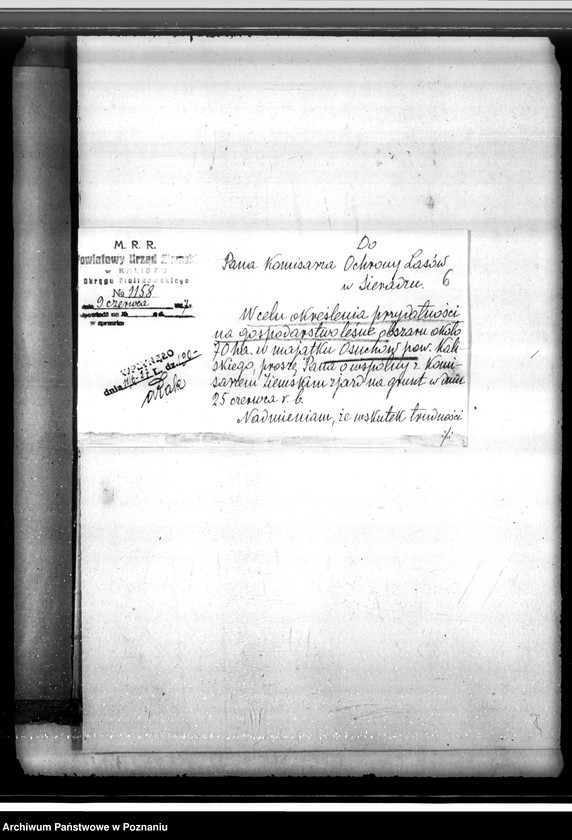 M. R. R.
Powiatowy Urząd Ziemski
w KALISZU
Okręgu Piotrkowskiego
№ 1158
dnia 9 czerwca
w sprawie
WPŁYNĘŁO
dnia
Do
Pana Komisarza Ochrony Lasów
w Sieradzu. 6
W celu określenia przydatności
na gospodarstwo leśne obszaru około
70 ha. w majątku Osuchów pow. Kali
skiego, proszę Pana o wspólny z Komi-
sarzem Ziemskim zjazd na grunt w dniu
25 czerwca r. b.
Nadmieniam, że wskutek trudności
·/·
Archiwum Państwowe w Poznaniu